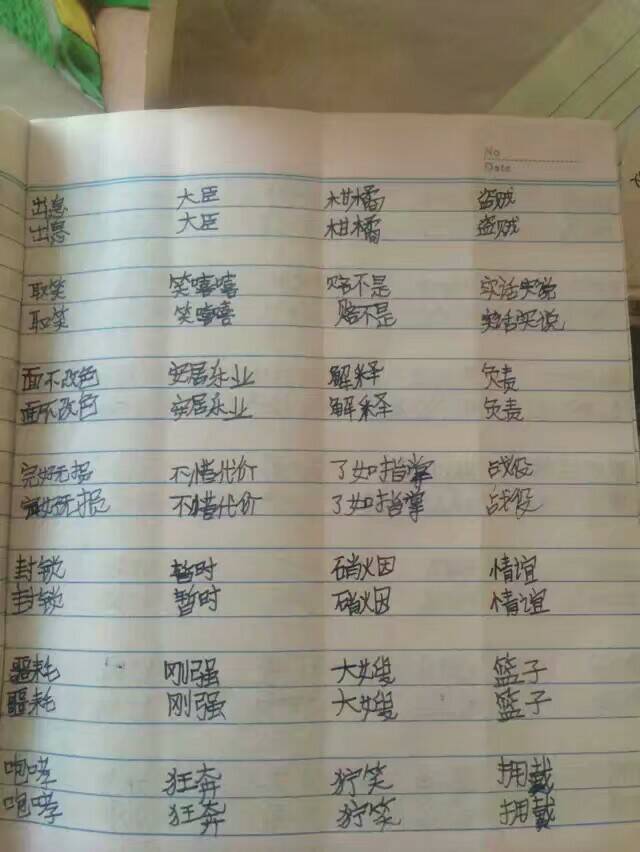 No
Date
出息 大臣 柑橘 盗贼
出息 大臣 柑橘 盗贼
取笑 笑嘻嘻 赔不是 实话实说
取笑 笑嘻嘻 赔不是 实话实说
面不改色 安居乐业 解释 负责
面不改色 安居乐业 解释 负责
完好无损 不惜代价 了如指掌 战役
完好无损 不惜代价 了如指掌 战役
封锁 暂时 硝烟 情谊
封锁 暂时 硝烟 情谊
噩耗 刚强 大嫂 篮子
噩耗 刚强 大嫂 篮子
咆哮 狂奔 狞笑 拥戴
咆哮 狂奔 狞笑 拥戴